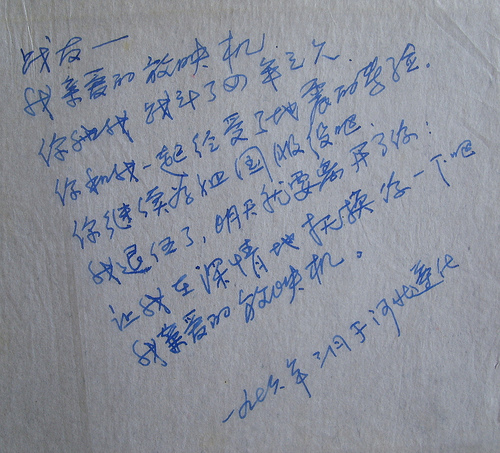 战友——
我亲爱的放映机.
你和我战斗了四年之久.
你和我一起经受了地震的考验.
你继续为祖国服役吧.
我退伍了,明天就要离开了你;
让我在深情地抚摸你一下吧
我亲爱的放映机。
一九七六年 月于河北遵化